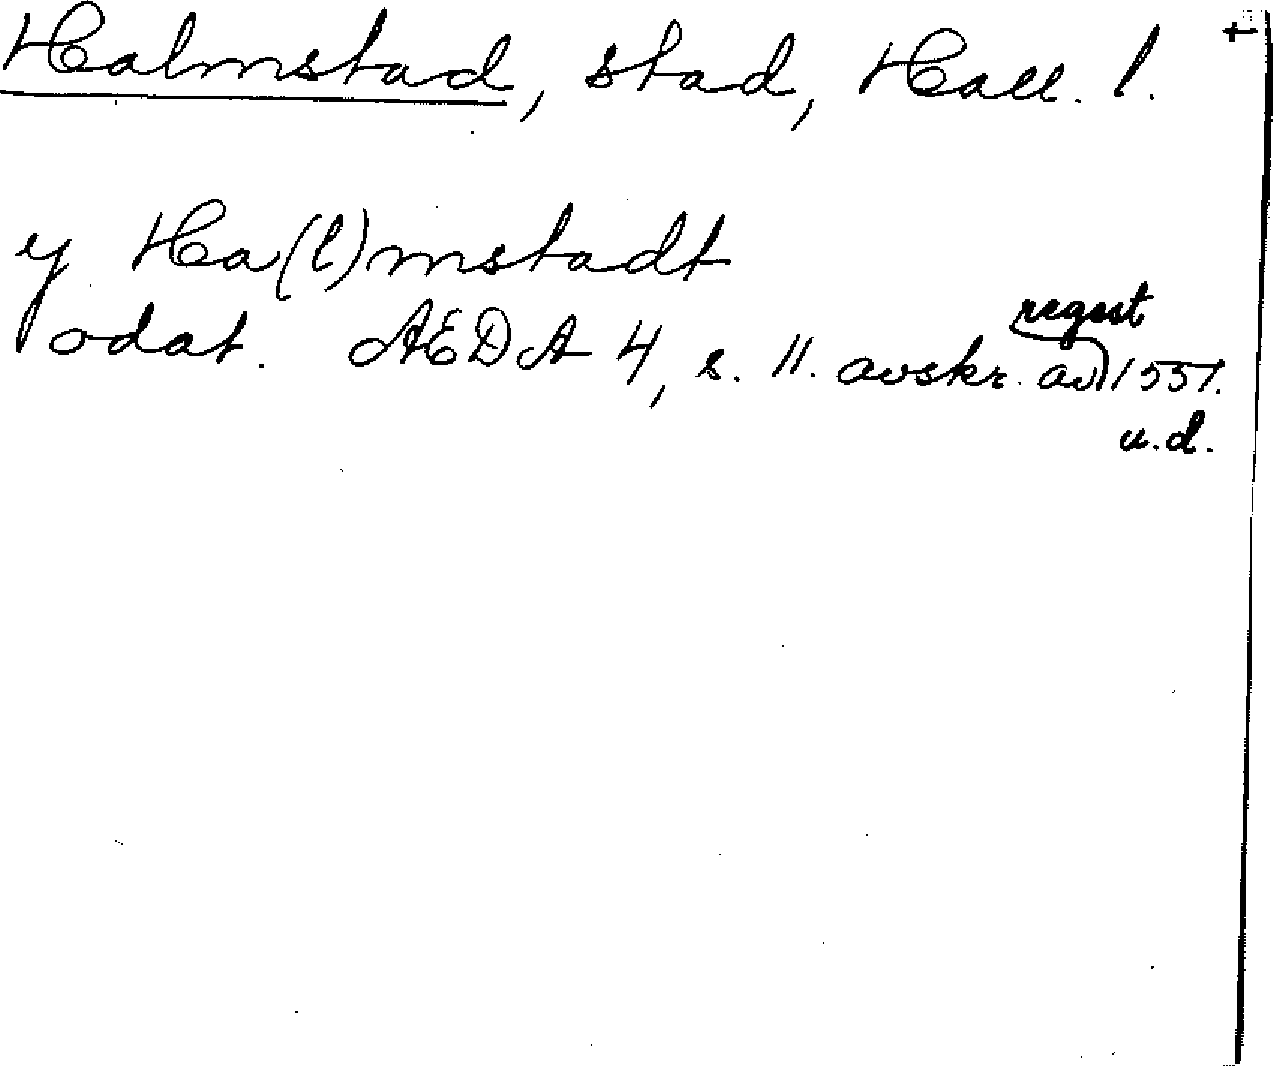 Halmstad, stad, Hall. l.
y Ha(l)mstadt
odat. AEDA 4, s. 11. avskr. av regest 1551.
u.d.